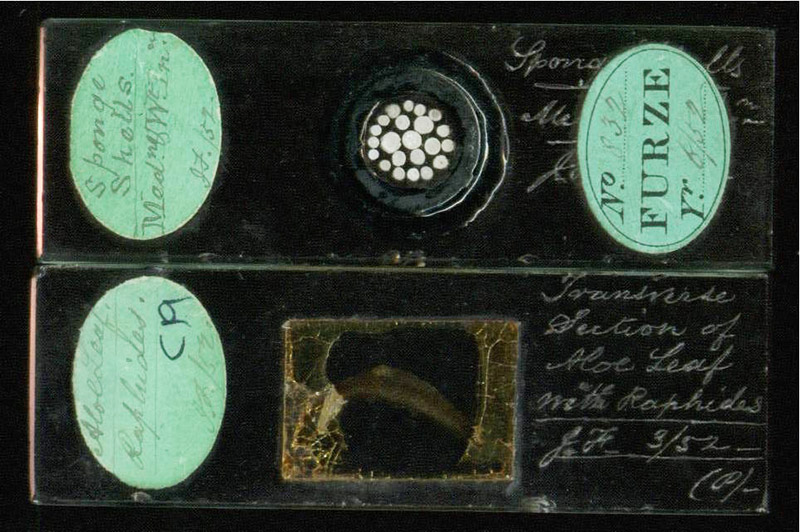 Sponge
Shells.
J.F. /52.
Spong lls
Me
J
No. 832
FURZE
Yr. 6/52
Aloe Leaf
Raphides.
J.F. /52
CP
Transverse
Section of
Aloe Leaf
with Raphides
J.F. 3/52 –
(P)–